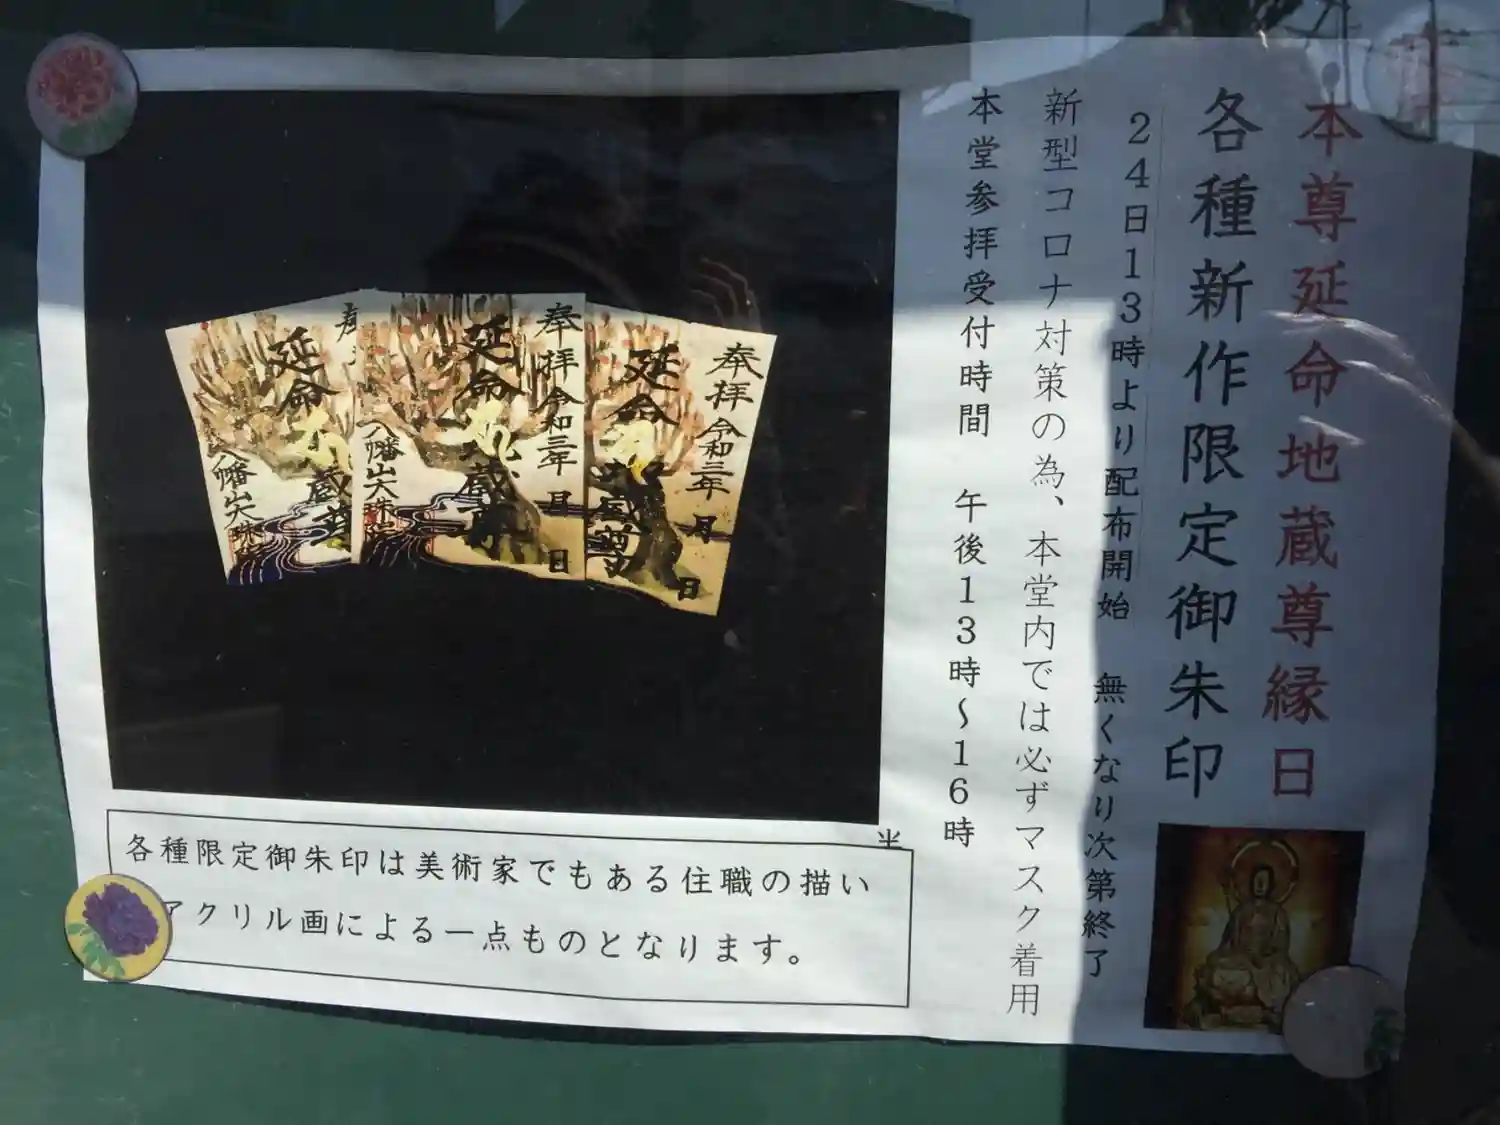 本尊延命地蔵尊縁日
各種新作限定御朱印
24日13時より配布開始　無くなり次第終了
新型コロナ対策の為、本堂内では必ずマスク着用
本堂参拝受付時間　午後13時～16時
奉拝令和三年 月 日
延命
八幡山大珠院
奉拝令和三年 月 日
延命地蔵尊
八幡山大珠院
延命
各種限定御朱印は美術家でもある住職の描い
アクリル画による一点ものとなります。